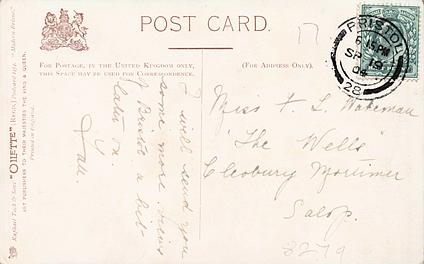 POST CARD.
17
FOR POSTAGE, IN THE UNITED KINGDOM ONLY,
THIS SPACE MAY BE USED FOR CORRESPONDENCE.
(FOR ADDRESS ONLY).
BRISTOL
6.15 PM
SP 19
28
I will send you
some more views
of Bristol a bit
later on.
Miss F. L. Wakeman
"The Wells"
Cleobury Mortimer
Salop.
8279
Raphael Tuck & Sons' "OILETTE" [REGD.] Postcard
ART PUBLISHERS TO THEIR MAJESTIES THE KING & QUEEN.
Printed in England.